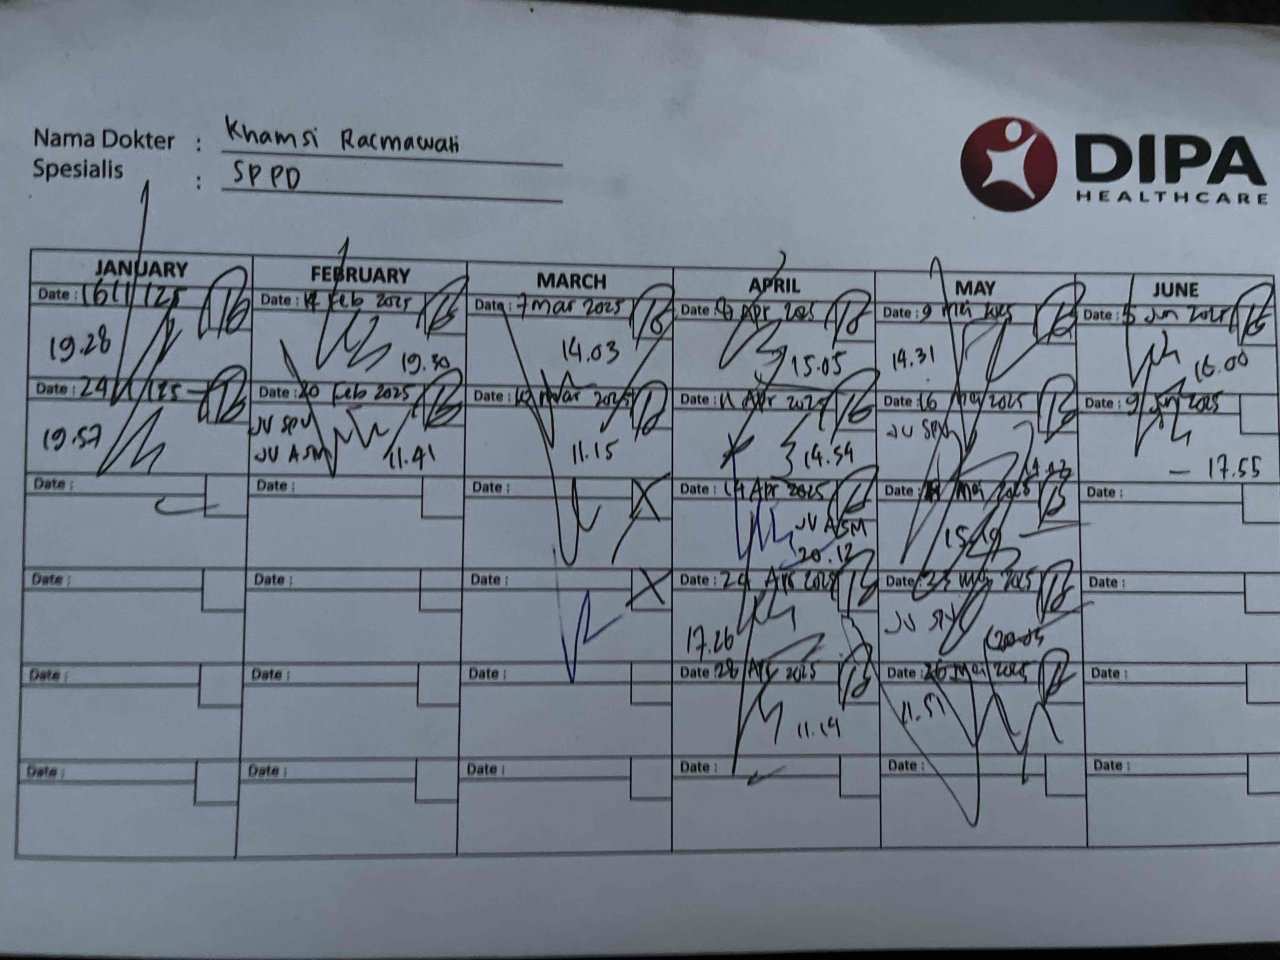 Nama Dokter : Khamsi Racmawati
Spesialis : SPPD
DIPA
HEALTHCARE
JANUARY
Date : 16/1/25
19.28
Date : 24/1/25
19.57
Date :
Date :
Date :
Date :
FEBRUARY
Date : 14 Feb 2025
19.30
Date : 20 Feb 2025
JV SPV
JV ASM
11.41
Date :
Date :
Date :
Date :
MARCH
Date : 7 mar 2025
14.03
Date : mar 2025
11.15
Date :
Date :
Date :
Date :
APRIL
Date : Apr 2025
15.05
Date : 11 Apr 2025
14.54
Date : 14 Apr 2025
JV ASM
20.12
Date : 24 Apr 2025
17.26
Date : 28 Apr 2025
11.14
Date :
MAY
Date : 9 Mei 2025
14.31
Date : 16 Mei 2025
JV SPV
Date : Mei 2025
15.19
Date : 23 Mei 2025
JV SPV
Date : 26 Mei 2025
11.51
Date :
JUNE
Date : 5 Jun 2025
16.00
Date : 9 Jun 2025
17.55
Date :
Date :
Date :
Date :